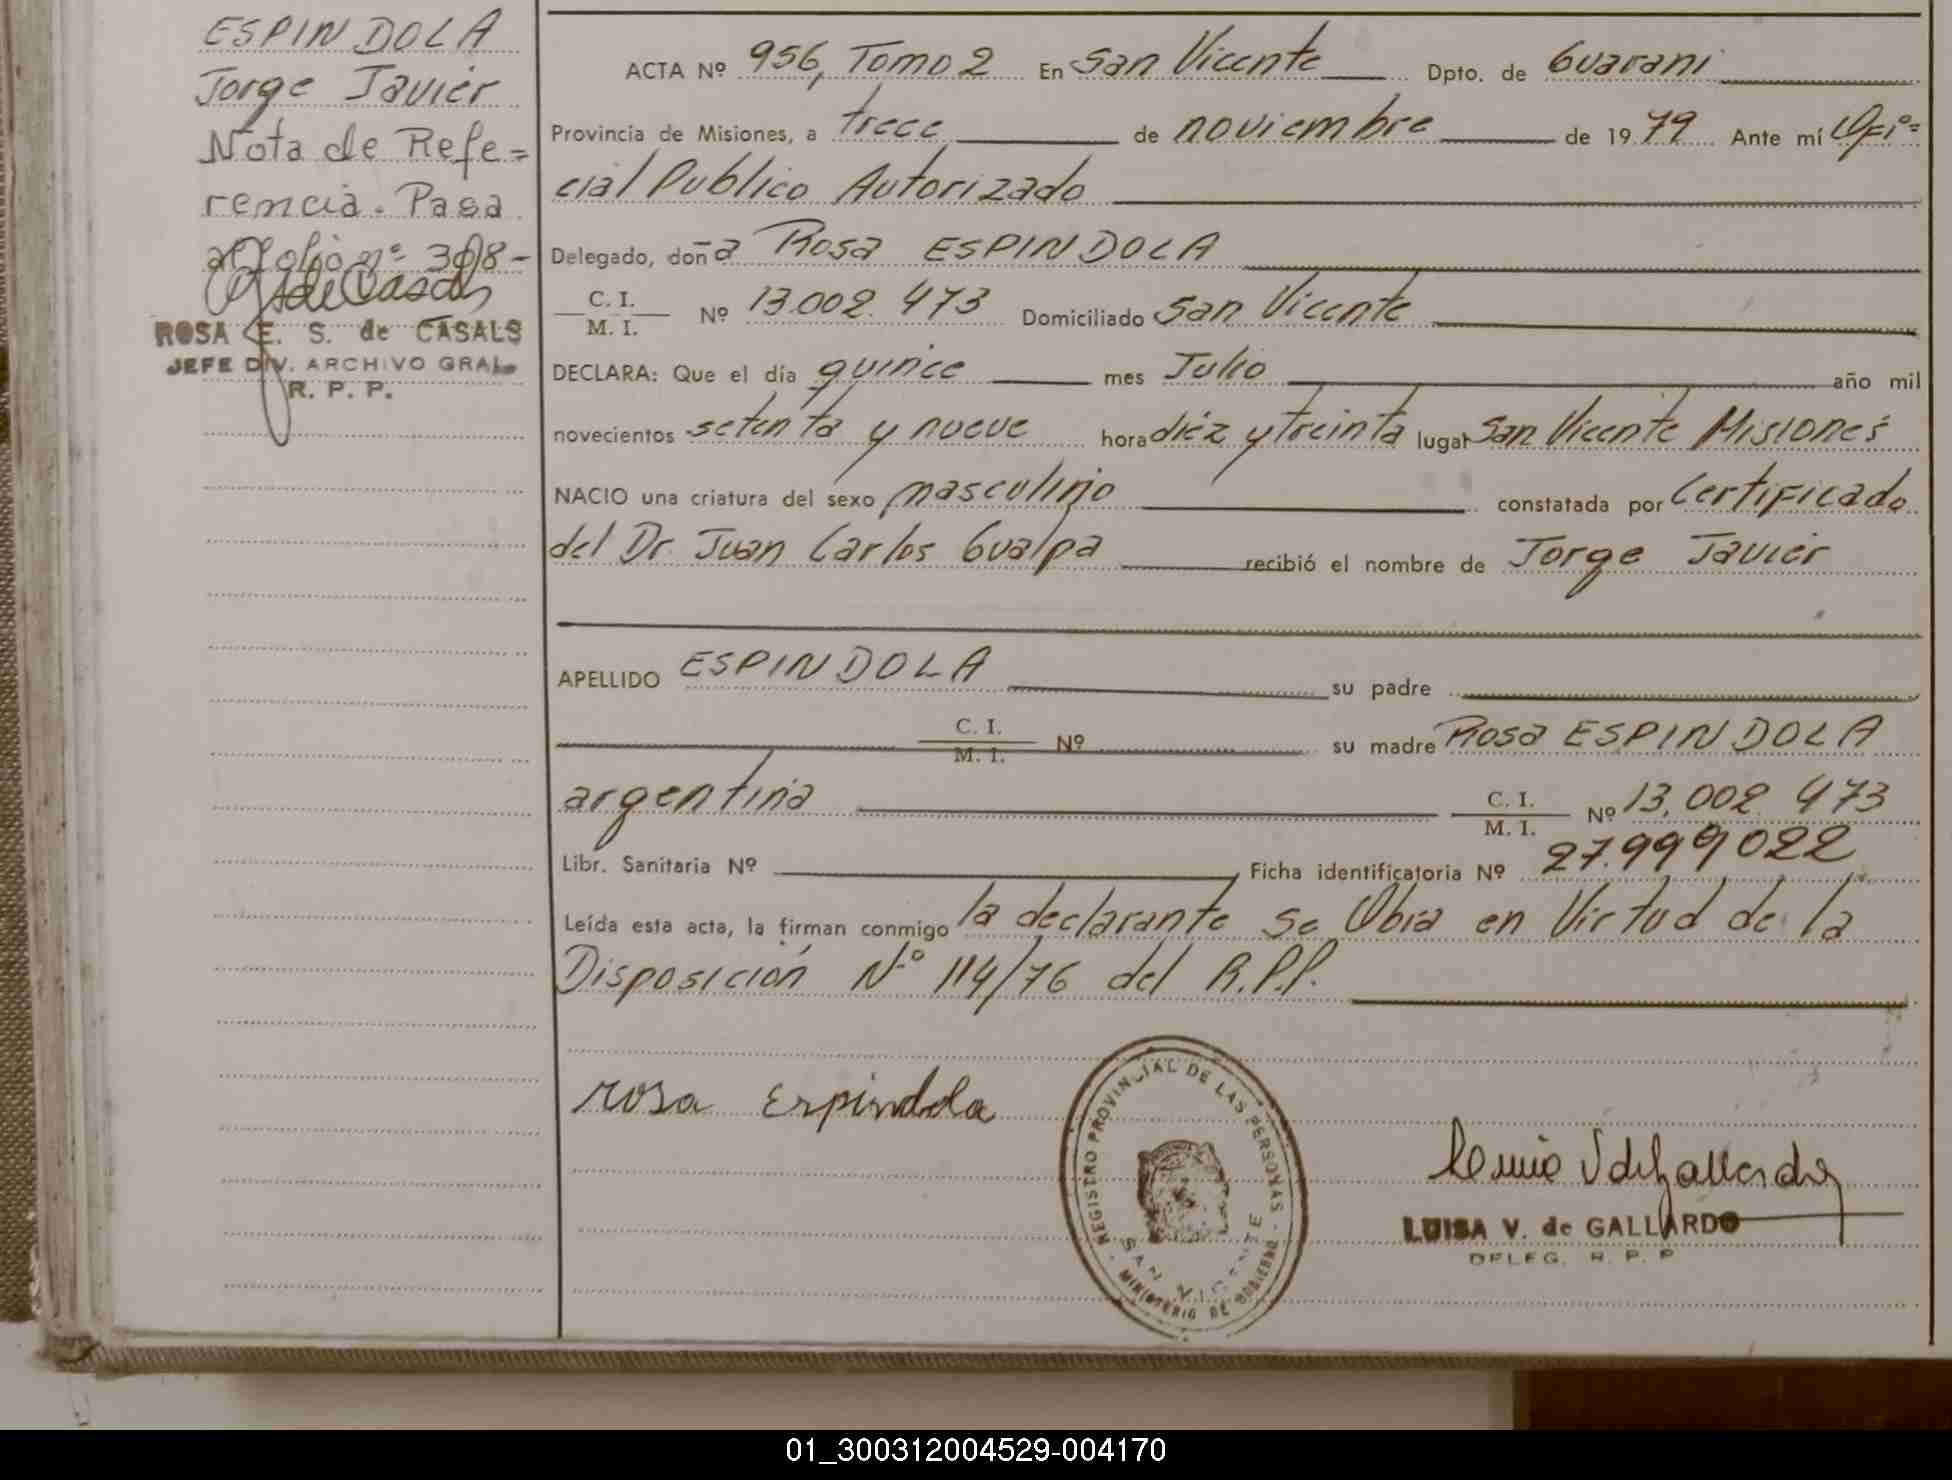 ESPINDOLA
Jorge Javier
Nota de Refe=
rencia. Pasa
al folio nº 308-
ROSA E. S. de CASALS
JEFE DIV. ARCHIVO GRAL.
R. P. P.
ACTA Nº 956, Tomo 2 En San Vicente Dpto. de Guarani
Provincia de Misiones, a trece de noviembre de 1979 Ante mí Ofi=
cial Publico Autorizado
Delegado, doña Rosa ESPINDOLA
C. I. / M. I. Nº 13.002.473 Domiciliado San Vicente
DECLARA: Que el día quince mes Julio año mil
novecientos setenta y nueve hora diez y treinta lugar San Vicente Misiones
NACIO una criatura del sexo masculino constatada por Certificado
del Dr. Juan Carlos Gualpa recibió el nombre de Jorge Javier
APELLIDO ESPINDOLA su padre
C. I. / M. I. Nº su madre Rosa ESPINDOLA
argentina C. I. / M. I. Nº 13,002.473
Libr. Sanitaria Nº Ficha identificatoria Nº 27.999022
Leída esta acta, la firman conmigo la declarante se Obra en Virtud de la
Disposición Nº 114/76 del R.P.P.
rosa Espindola
REGISTRO PROVINCIAL DE LAS PERSONAS
SAN VICENTE
MINISTERIO DE GOBIERNO
LUISA V. de GALLARDO
DELEG. R. P. P
01_300312004529-004170